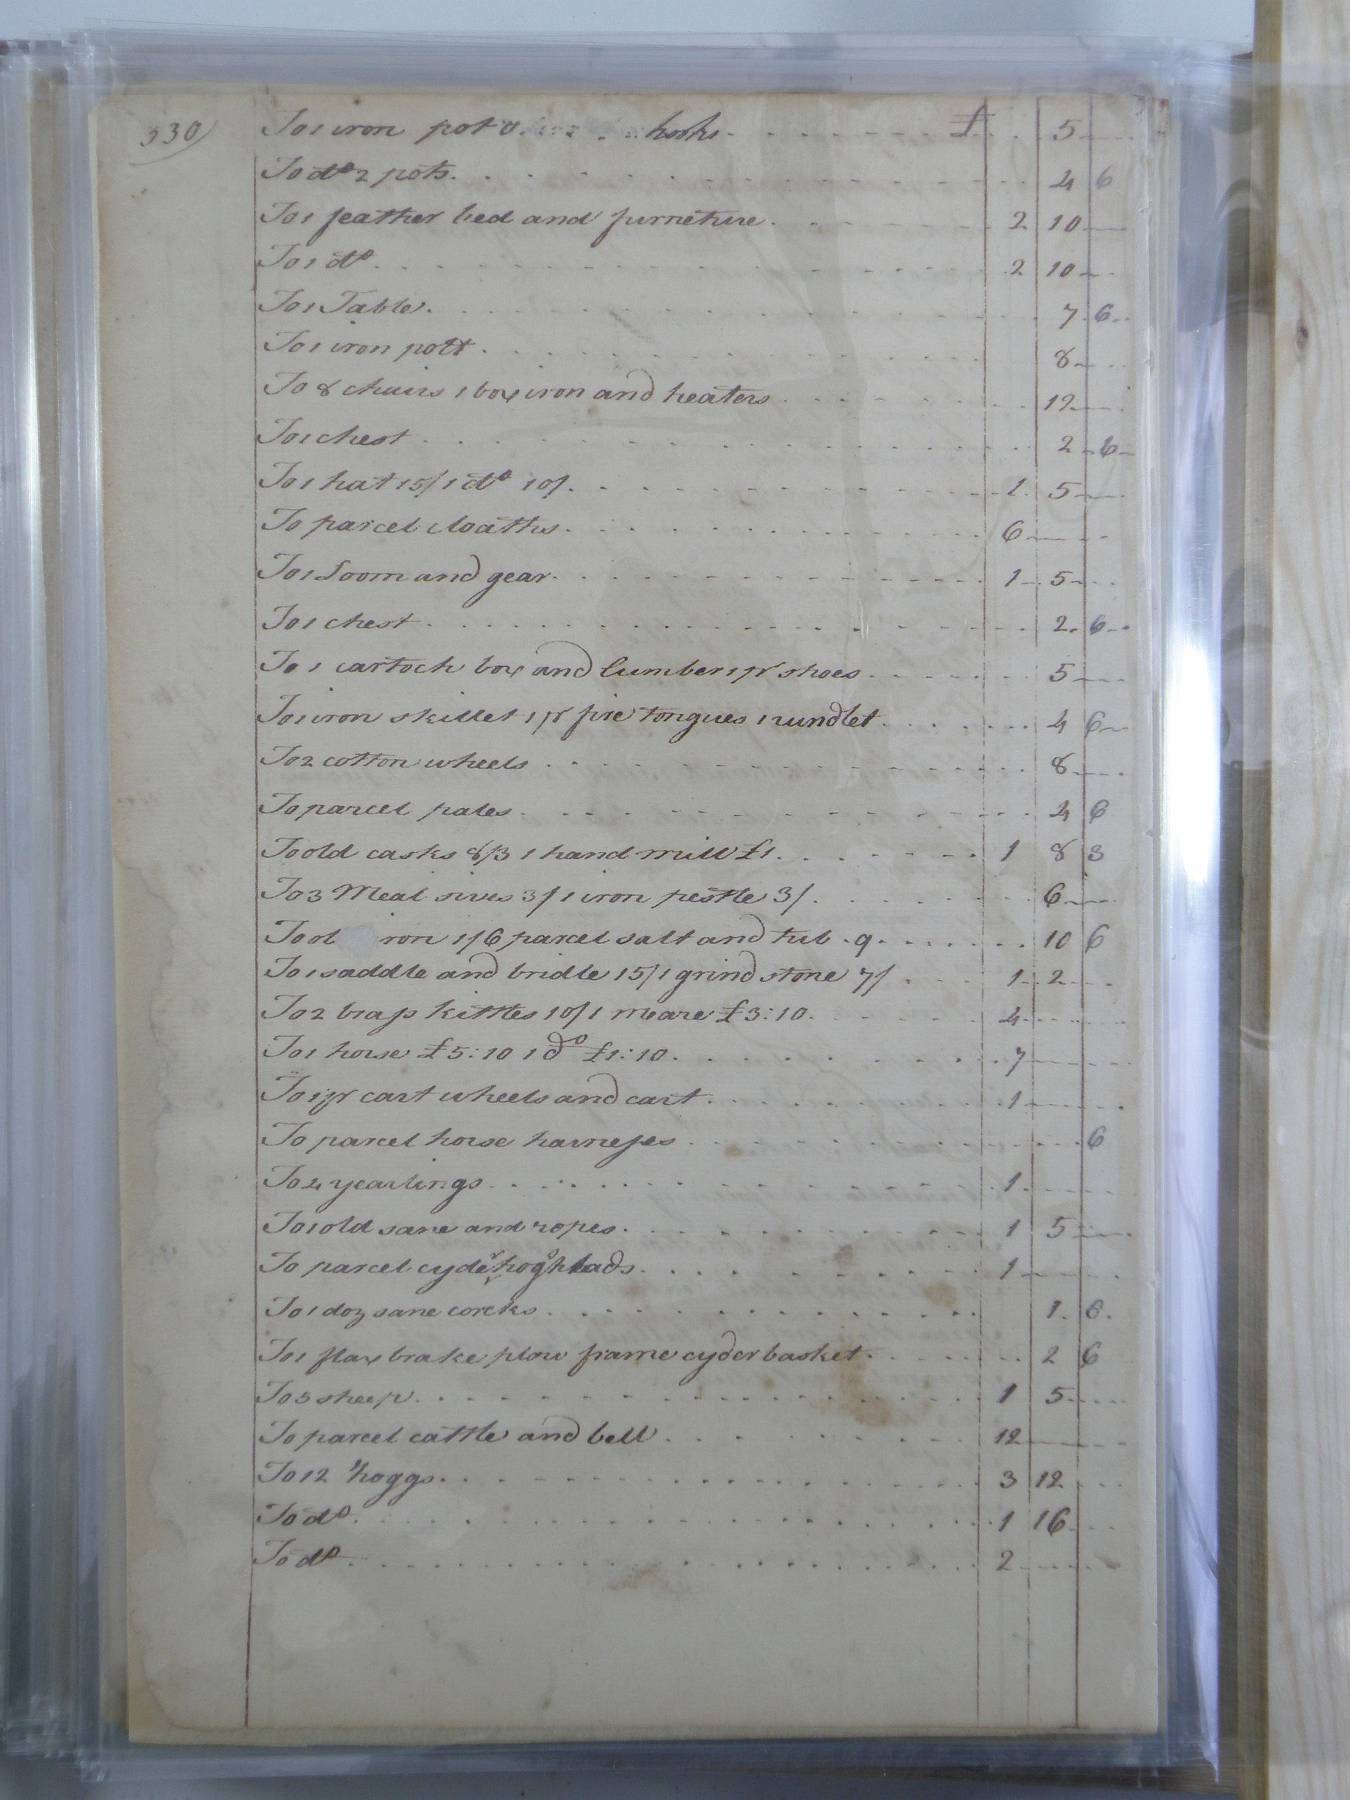 330
To 1 iron pot hooks £ 5
To do 2 pots 4 6
To 1 feather bed and furneture 2 10
To 1 do 2 10
To 1 Table 7 6
To 1 iron pott 8
To 8 chairs 1 box iron and heaters 12
To 1 chest 2 6
To 1 hat 15/ 1 do 10/ 1 5
To parcel cloaths 6
To 1 Loom and gear 1 5
To 1 chest 2 6
To 1 cartoch box and Lumber 1 pr shoes 5
To 1 iron skillet 1 pr fire tongues 1 rundlet 4 6
To 2 cotton wheels 8
To parcel pales 4 6
To old casks 8/3 1 hand mill £1 1 8 3
To 3 Meal sives 3/ 1 iron pestle 3/ 6
To ol ron 1/6 parcel salt and tub 9 10 6
To 1 saddle and bridle 15/ 1 grind stone 7/ 1 2
To 2 brass kittles 10/ 1 meare £3:10 4
To 1 horse £5:10 1 do £1:10 7
To 1 pr cart wheels and cart 1
To parcel horse harnesses 6
To 4 yearlings 1
To 1 old sane and ropes 1 5
To parcel cyder hogsheads 1
To 1 doz sane corcks 1 6
To 1 flax brake plow frame cyder basket 2 6
To 5 sheep 1 5
To parcel cattle and bell 12
To 12 hoggs 3 12
To do 1 16
To do 2